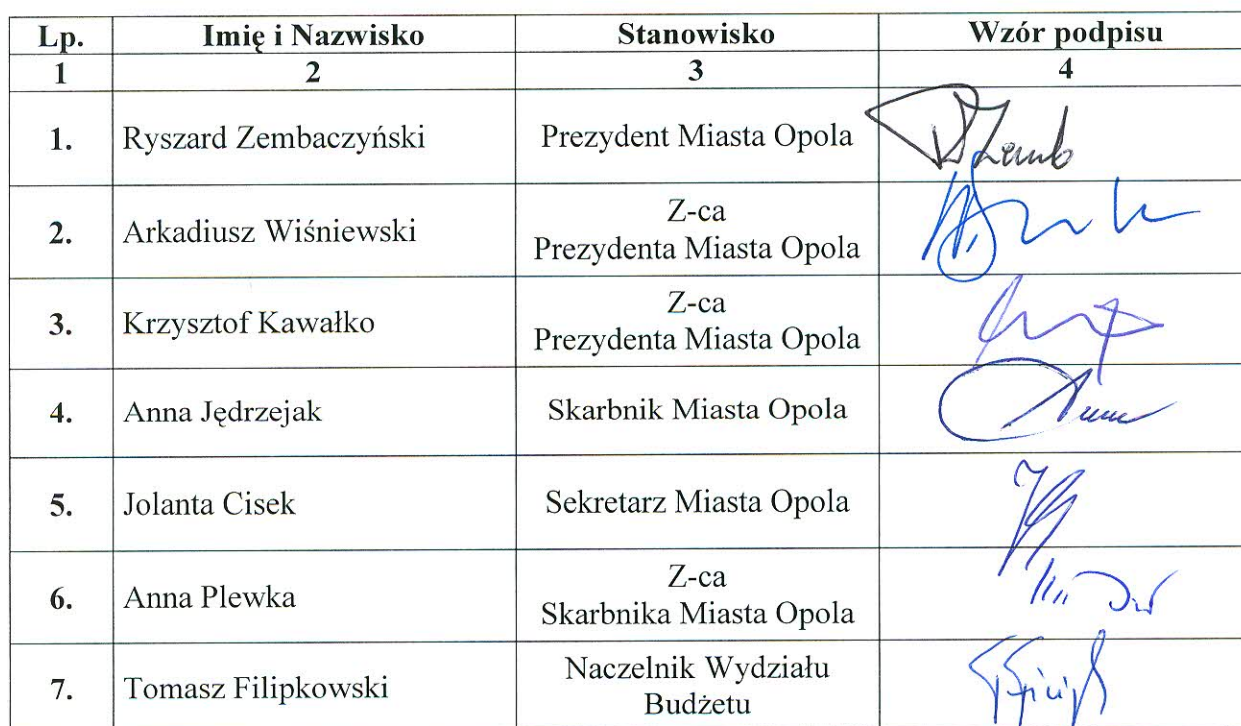 Lp. Imię i Nazwisko Stanowisko Wzór podpisu
1 2 3 4
1. Ryszard Zembaczyński Prezydent Miasta Opola
Z-ca
2. Arkadiusz Wiśniewski
Prezydenta Miasta Opola
Z-ca
3. Krzysztof Kawałko
Prezydenta Miasta Opola
4. Anna Jędrzejak Skarbnik Miasta Opola
5. Jolanta Cisek Sekretarz Miasta Opola
Z-ca
6. Anna Plewka
Skarbnika Miasta Opola
Naczelnik Wydziału
7. Tomasz Filipkowski
Budżetu